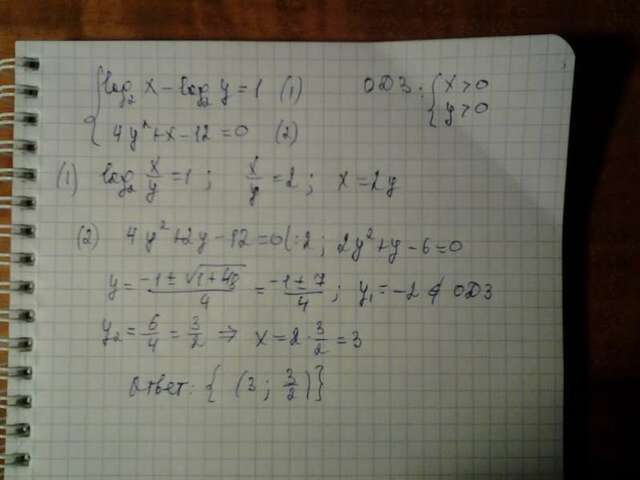 { log₂ x − log₂ y = 1 (1) ОДЗ: { x > 0
4y² + x − 12 = 0 (2) y > 0
(1) log₂ x/y = 1 ; x/y = 2 ; x = 2y
(2) 4y² + 2y − 12 = 0 |:2 ; 2y² + y − 6 = 0
y = (−1 ± √(1 + 48))/4 = (−1 ± 7)/4 ; y₁ = −2 ∉ ОДЗ
y₂ = 6/4 = 3/2 ⇒ x = 2 · 3/2 = 3
Ответ: { (3 ; 3/2) }